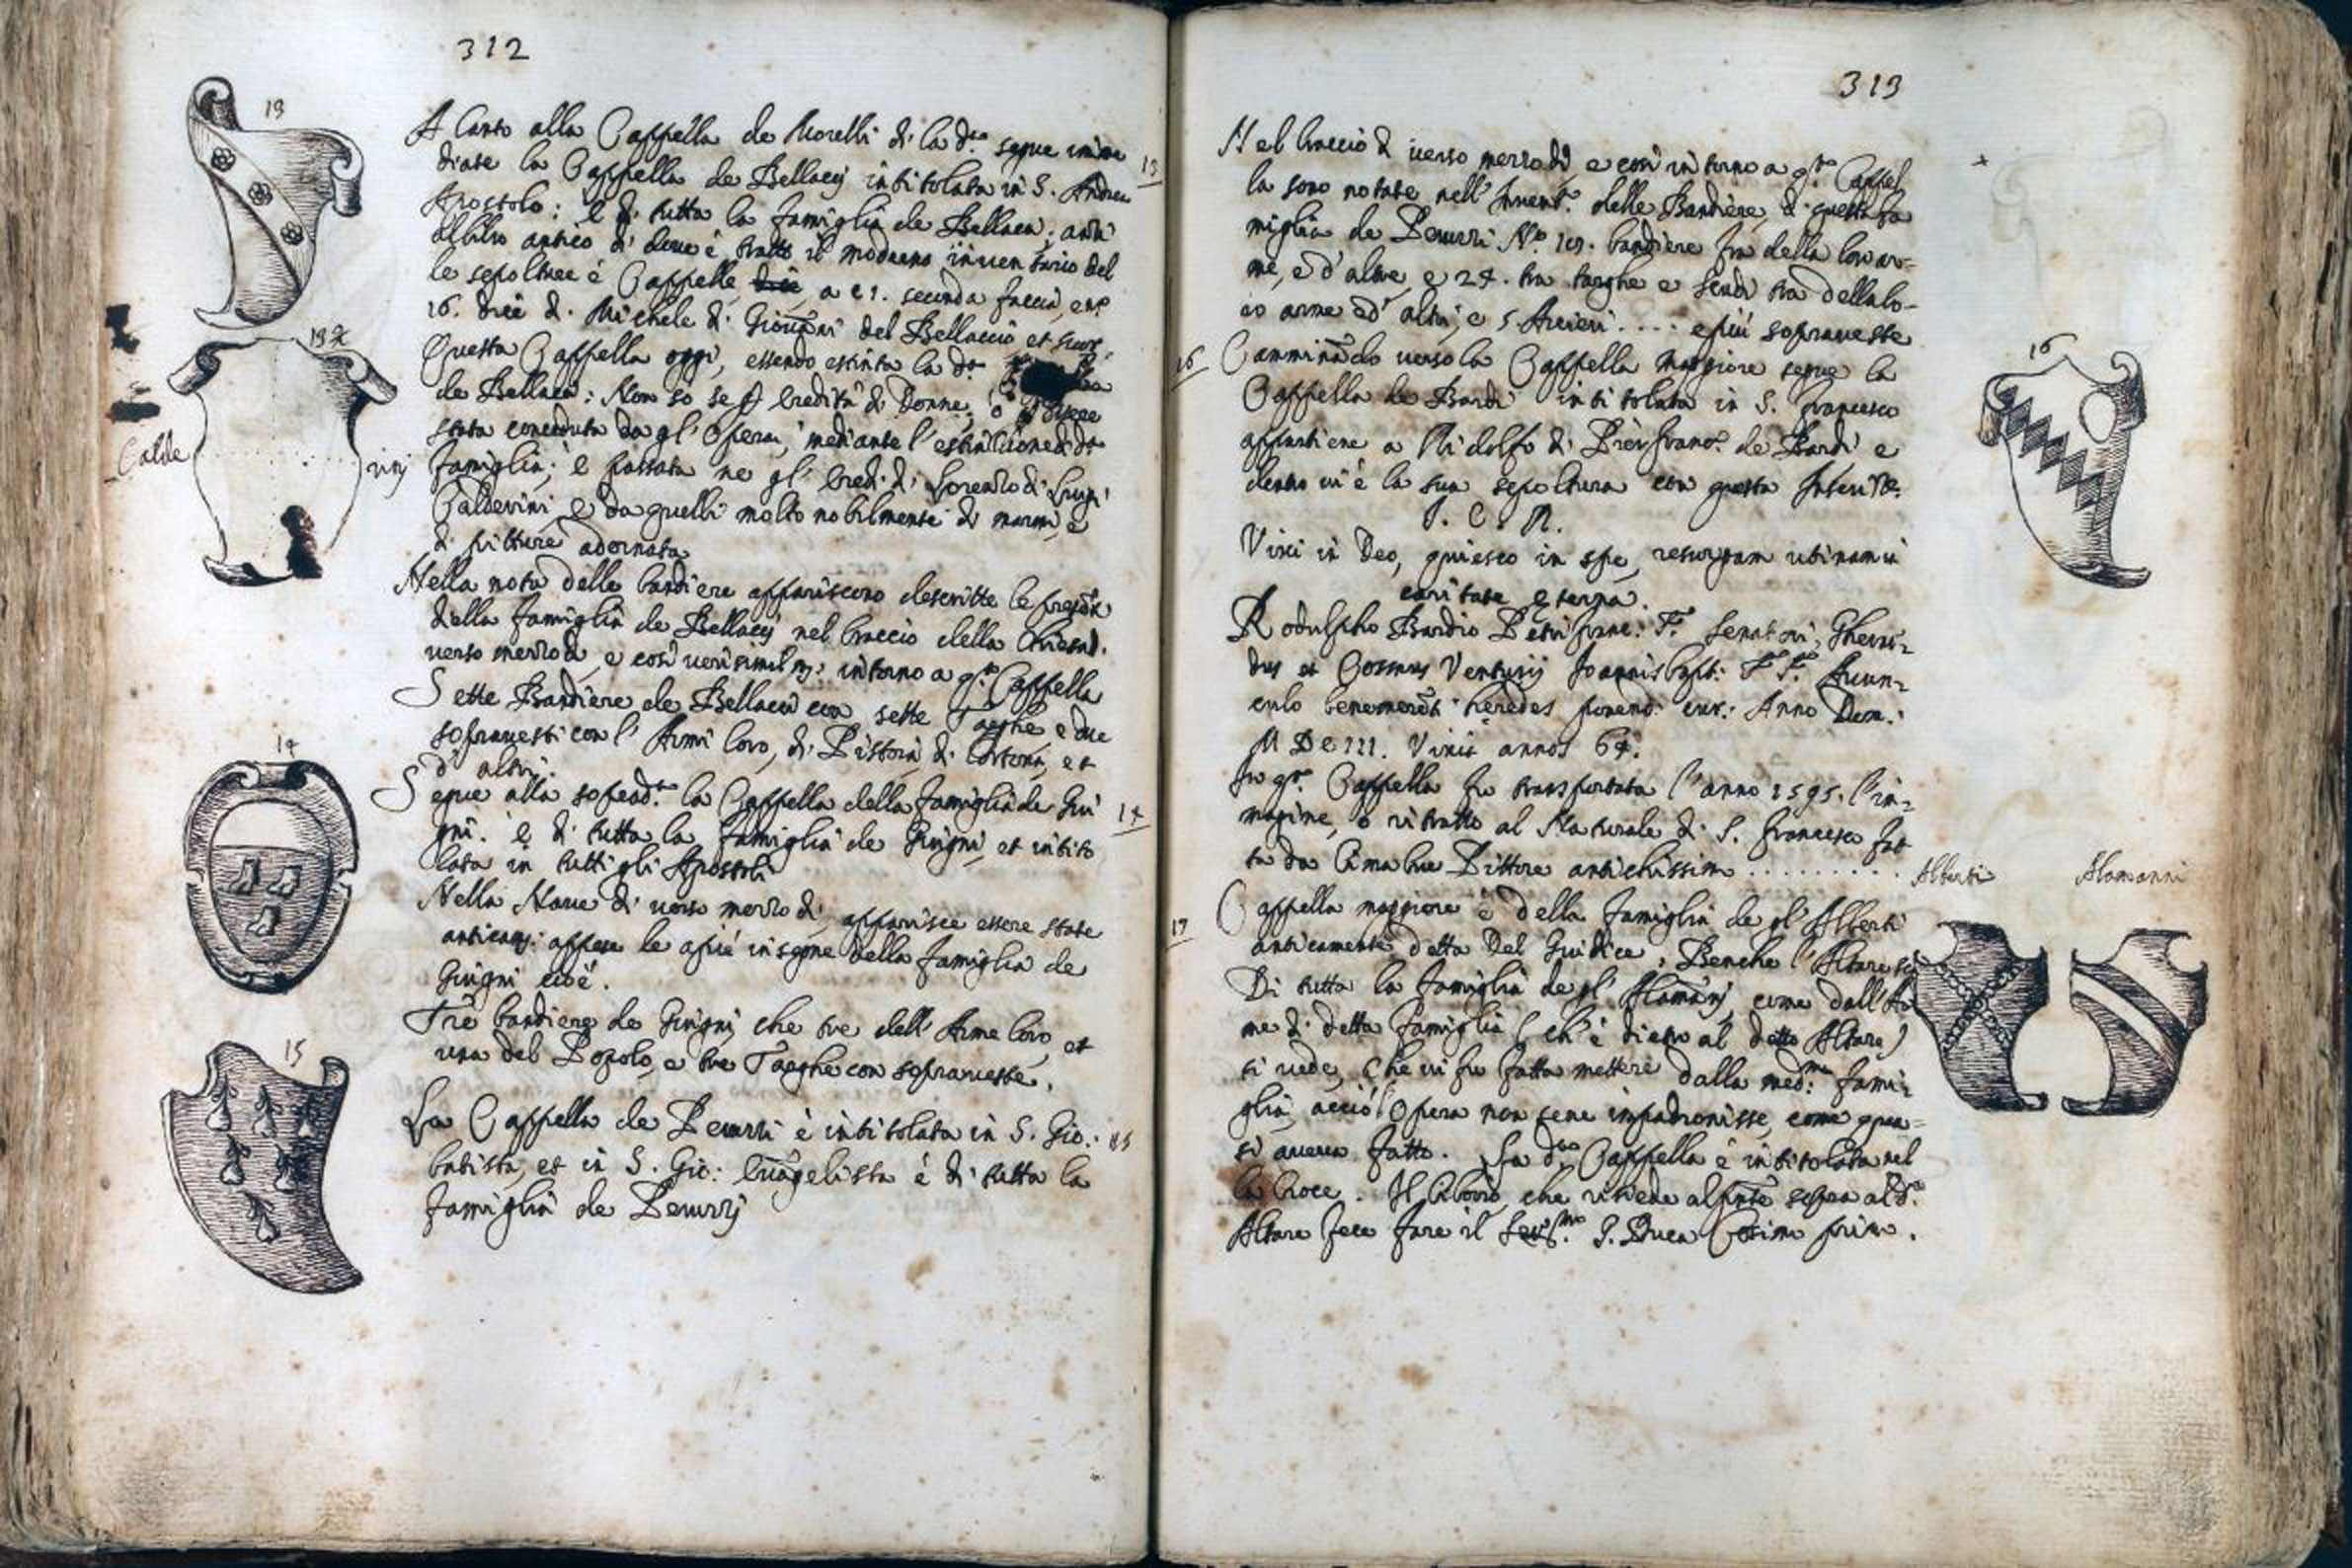 312
13
A canto alla Cappella de Morelli di la d.ta segue imme
diate la Cappella de Bellacij intitolata in S. Andrea
13
Apostolo: è di tutta la famiglia de Bellacci; anzi
al libro antico di dove è tratto il moderno inventario del
le sepolture e Cappelle a c 1. seconda faccia, e n.o
16. dice di Michele di Giovāni del Bellaccio et suor.
13
Questa Cappella oggi, essendo estinta la d.a
de Bellacci: Non so se p eredità di Donne, o
stata conceduta da gl' Operai, mediante l' estinzione di d.a
Calde
rinj
famiglia; è passata ne gl' Eredi di Lorenzo di Luigi
Calderini e da quelli molto nobilmente di marmi, e
di pitture adornata
Nella nota delle bandiere appariscono descritte le
della famiglia de Bellacij nel braccio della Chiesa
verso mezzo dì, e così verisimilm: intorno a q.ta Cappella
Sette Bandiere de Bellacci con sette Targhe e due
sopravesti con l' Armi loro, di Pistoia, di Cortona, et
d' altri.
14
Segue alla soprad.ta la Cappella della famiglia de Giu
14
gni. è di tutta la famiglia de Giugni, et intito
lata in tutti gli Apostoli
Nella Nave di verso mezzo dì, apparisce essere state
anticam: appese le apiè insegne della famiglia de
Giugni cioè.
Tre bandiere de Giugni, che tre dell' Arme loro, et
una del Popolo, e tre Targhe con sopraveste.
15
La Cappella de Peruzzi è intitolata in S. Gio:
15
batista, et in S. Gio: Evāgelista è di tutta la
famiglia de Peruzzj
313
Nel braccio di verso mezzo dì, e così intorno a q.ta Cappel
la sono notate nell' Invent.o delle Bandiere, di questa fa
miglia de Peruzzi N.o 101. bandiere fra della loro ar=
me, e d' altre, e 24. tra targhe e scudi tra della lo=
ro arme ed' altri, e 5 .... e più sopraveste
16
16
Camminādo verso la Cappella maggiore segue la
Cappella de Bardi intitolata in S. Francesco
appartiene a Ridolfo di Pierfranc.o de Bardi e
dentro vi è la sua sepoltura con questa Inscriz.e
Vixi in Deo, quiesco in spe, resurgam utinam in
caritate ęterna.
Rodulpho Bardio Petri franc: F. Senatori, Gherar=
dus et Cosmus Venturij Joannis bapt: F F. Avun=
culo benemerēti heredes ponend: cur: Anno Dom:
M D C III. Vixit annos 64.
In q.ta Cappella fu trasportata l' anno 1595. l' im=
magine, o ritratto al Naturale di S. Francesco fat
ta da Cimabue Pittore antichissimo .........
Alberti
Alamanni
17
Cappella maggiore è della famiglia de gl' Alberti
anticamente detta Del Giudice, Benche l' Altare sia
Di tutta la famiglia de gl' Alamānj, come dall' Ar
me di detta famiglia (ch' è dietro al detto Altare)
si vede, che vi fu fatta mettere dalla med:ma fami=
glia, acciò l' Opera non sene impadronisse, come qua=
si aveva fatto. La d.ta Cappella è intitolata nel
la Croce. Il Ciborio, che risiede al p̄nte sopra al d.o
Altare fece fare il Ser.mo G. Duca Cosimo primo.